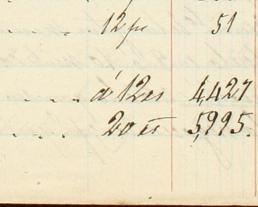 . . . 12 pr 51
. . . . á 12es 4,427
. . . 20 es 5,995.